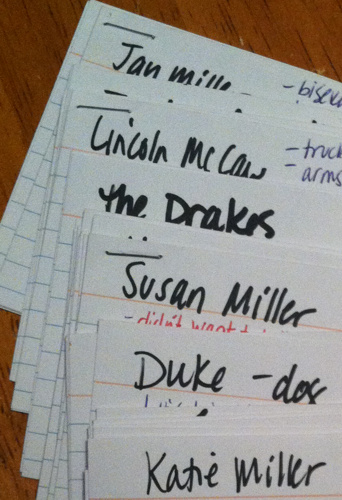 Jan
Lincoln McCaw
- truck
- arms
the Drakes
Susan Miller
- didn't want
Duke -dog
Katie Miller